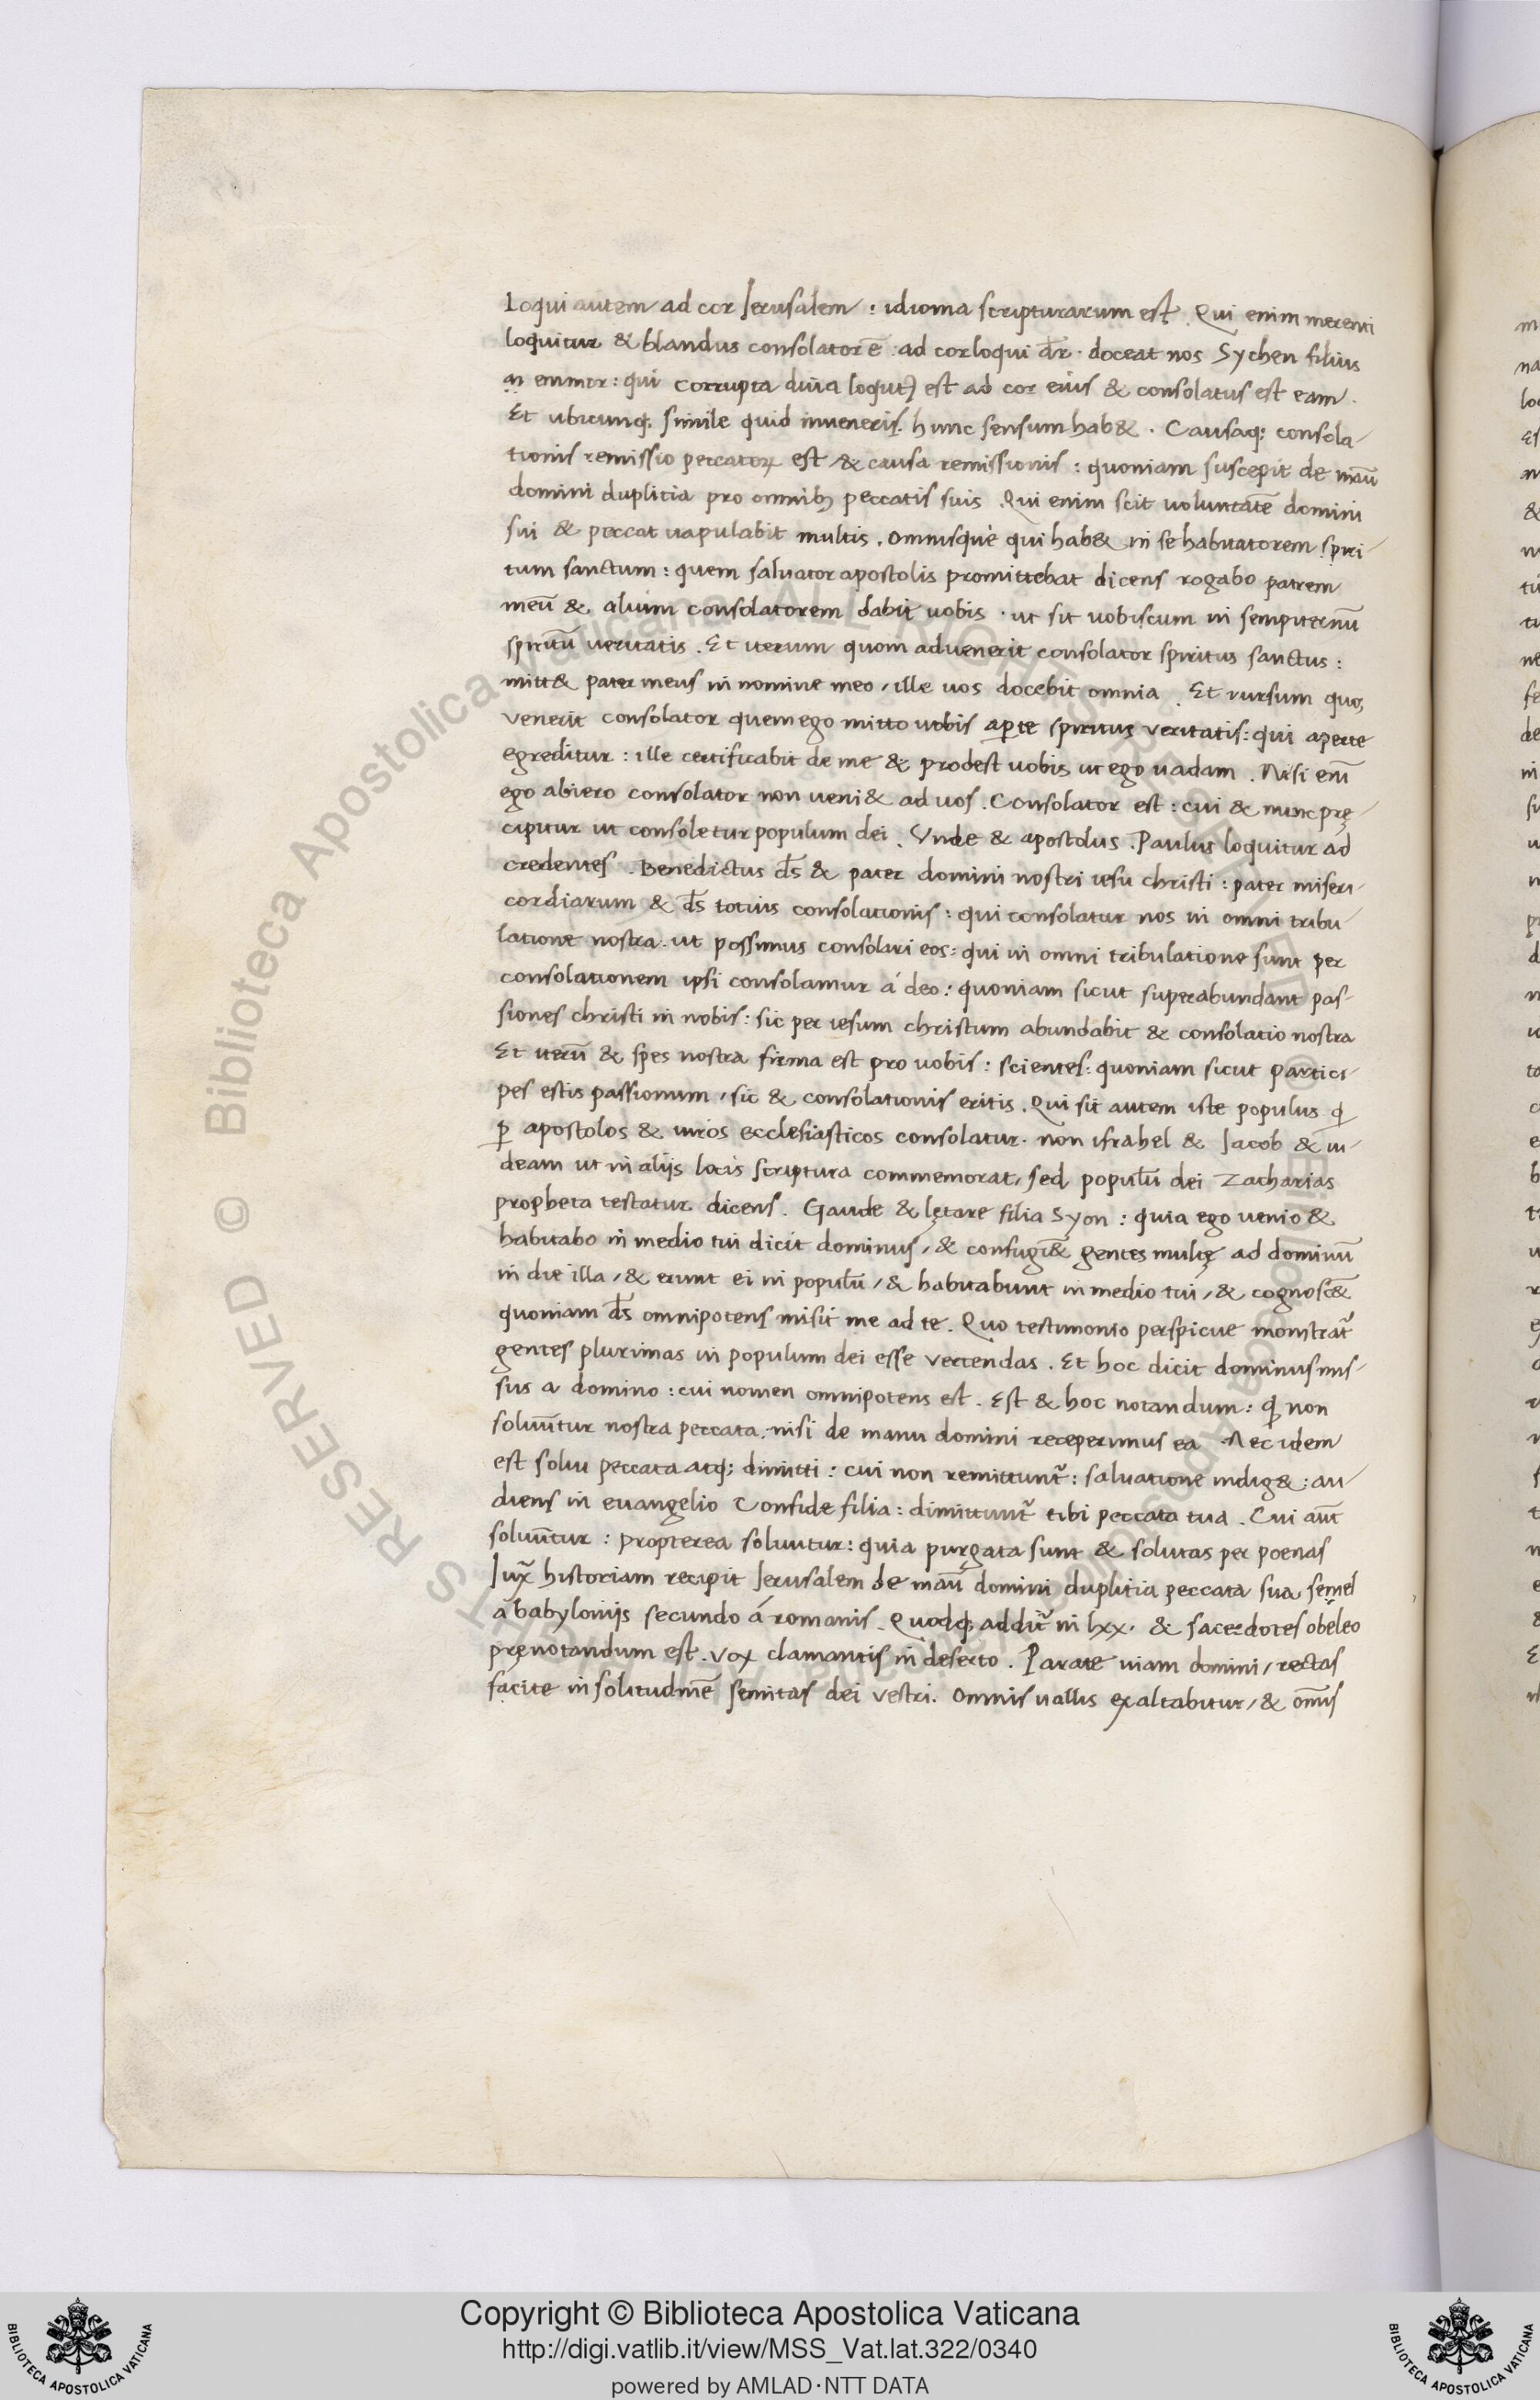 Loqui autem ad cor Jerusalem : idioma scripturarum est . Qui enim merenti
loquitur & blandus consolator ē : ad cor loqui dr̄ · doceat nos Sychen filius
emmor : qui corrupta dina loqut) est ad cor eius & consolatus est eam .
Et ubicunq; simile quid inueneris . hunc sensum hab& . Causaq; consola-
tionis remissio peccatorꝝ est / & causa remissionis : quoniam suscepit de manū
domini duplicia pro omnib; peccatis suis . Qui enim scit uoluntatē domini
sui & peccat uapulabit multis . omnisque qui hab& in se habitatorem spiri-
tum sanctum : quem saluator apostolis promittebat dicens rogabo patrem
meū & alium consolatorem dabit uobis · ut sit uobiscum in sempiternū
spiritū ueritatis . Et iterum quom aduenerit consolator spiritus sanctus :
mitt& pater meus in nomine meo / ille uos docebit omnia . Et rursum quo,
venerit consolator quem ego mitto uobis aꝑte spiritus veritatis : qui aperte
egreditur : ille certificabit de me & prodest uobis ut ego uadam . Nisi enī
ego abiero consolator non ueni& ad uos . Consolator est : cui & nunc prę-
cipitur ut consoletur populum dei . Vnde & apostolus . Paulus loquitur ad
credentes . Benedictus ds̄ & pater domini nostri iesu christi : pater miseri-
cordiarum & ds̄ totius consolationis : qui consolatur nos in omni tribu-
latione nostra . ut possimus consolari eos : qui in omni tribulatione sunt per
consolationem ipsi consolamur á deo : quoniam sicut superabundant pas-
siones christi in nobis : sic per iesum christum abundabit & consolatio nostra
Et iterū & spes nostra firma est pro uobis : scientes : quoniam sicut partici-
pes estis passionum / sic & consolationis eritis . Qui sit autem iste populus ꝙ
ꝑ apostolos & uiros ecclesiasticos consolatur . non israhel & Jacob & iu-
deam ut in alijs locis scriptura commemorat / sed populū dei Zacharias
propheta testatur dicens . Gaude & lętare filia Syon : quia ego uenio &
habitabo in medio tui dicit dominus / & confugi&̄ gentes multę ad dominū
in die illa / & erunt ei in populū / & habitabunt in medio tui / & cognosc&̄
quoniam ds̄ omnipotens misit me ad te . Quo testimonio perspicue monstrat᷑
gentes plurimas in populum dei esse vertendas . Et hoc dicit dominus mis-
sus a domino : cui nomen omnipotens est . Est & hoc notandum : ꝙ non
soluūtur nostra peccata . nisi de manu domini receperimus ea . Nec idem
est solui peccata atq; dimitti : cui non remittunt᷑ : saluatione indig& : au-
diens in euangelio Confide filia : dimittunt᷑ tibi peccata tua . Cui aūt
soluūtur : propterea soluuntur : quia purgata sunt & solutas per poenas
Iux̄ historiam recipit Jerusalem de manū domini duplitia peccata sua semel
á babylonijs secundo á romanis . Quodq; addit᷑ in lxx . & sacerdotes obeleo
pręnotandum est . vox clamantis in deserto . Parate uiam domini / rectas
facite in solitudinē semitas dei vestri . Omnis uallis exaltabitur / & om̄is
Copyright © Biblioteca Apostolica Vaticana
http://digi.vatlib.it/view/MSS_Vat.lat.322/0340
powered by AMLAD·NTT DATA